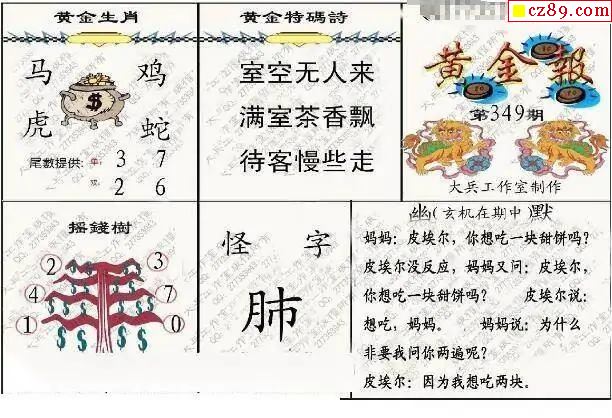 cz89.com
黄金生肖
马 鸡
虎 蛇
尾數提供: 单: 3 7
双: 2 6
黄金特碼詩
室空无人来
满室茶香飘
待客慢些走
黄金報
第349期
大兵工作室制作
摇錢樹
2 3
4 7
1 0
怪 字
肺
幽(玄机在期中)默
妈妈: 皮埃尔, 你想吃一块甜饼吗?
皮埃尔没反应, 妈妈又问: 皮埃尔,
你想吃一块甜饼吗? 皮埃尔说:
想吃, 妈妈。 妈妈说: 为什么
非要我问你两遍呢?
皮埃尔: 因为我想吃两块。